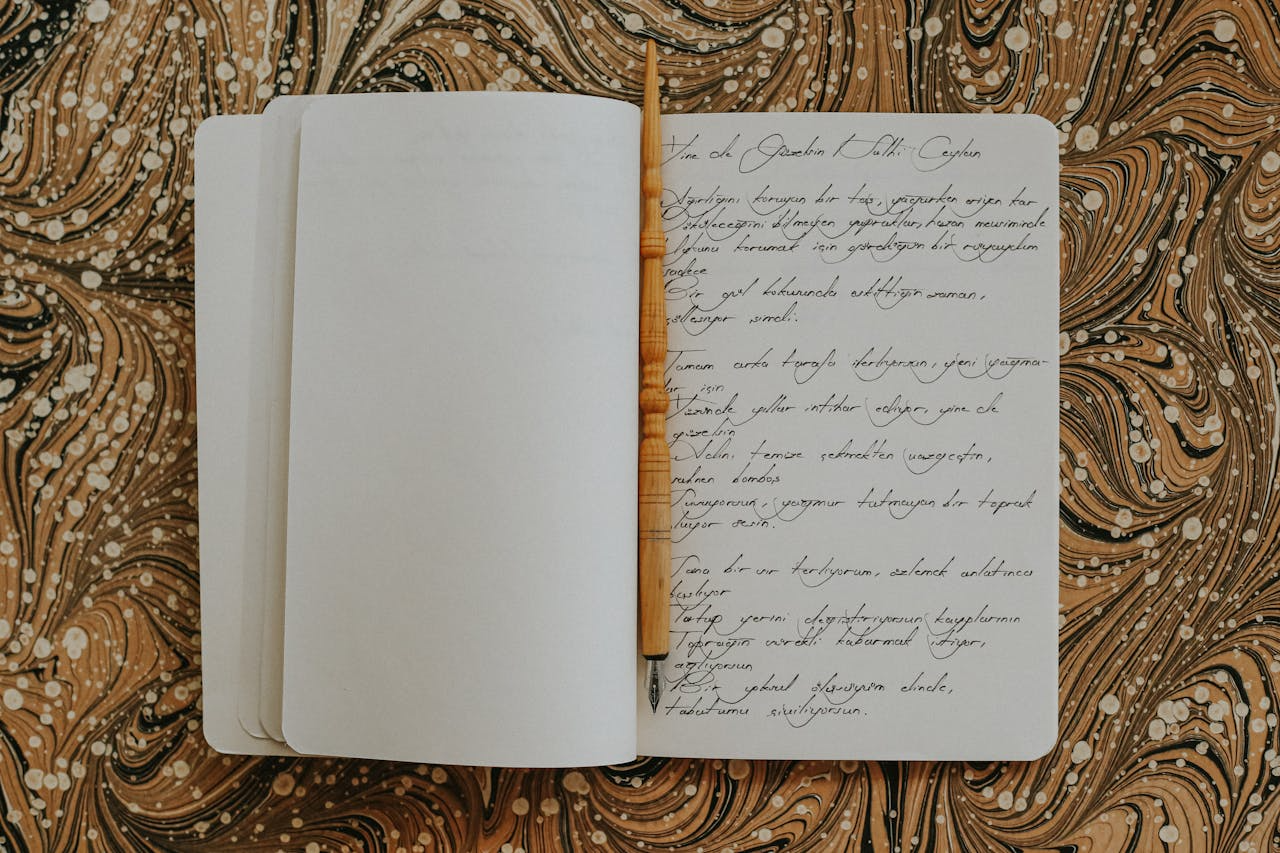 Yine de Güzelsin Nulhi Ceylan
Ağırlığını koruyan bir taş, yağarken eriyen kar
Döküleceğini bilmeyen yapraklar, hazan mevsiminde
korumak için gördüğüm bir rüyaydın
sadece
Bir gül kokusunda eskittiğin zaman,
şimdi.
Tamam arka tarafa ilerliyorsun, yeni yağma-
lar için
Yüzünde yıllar intihar ediyor, yine de
güzelsin
temize çekmekten vazgeçtin,
sahnen bomboş
yağmur tutmayan bir toprak
sesin.
Sana bir sır terliyorum, özlemek anlatınca
başlıyor
Tutup yerini değiştiriyorsun kayıplarının
Toprağın sürekli kabarmak istiyor,
ağlıyorsun
Bir yoksul ölüsüyüm elinde,
tabutumu siviliyorsun.